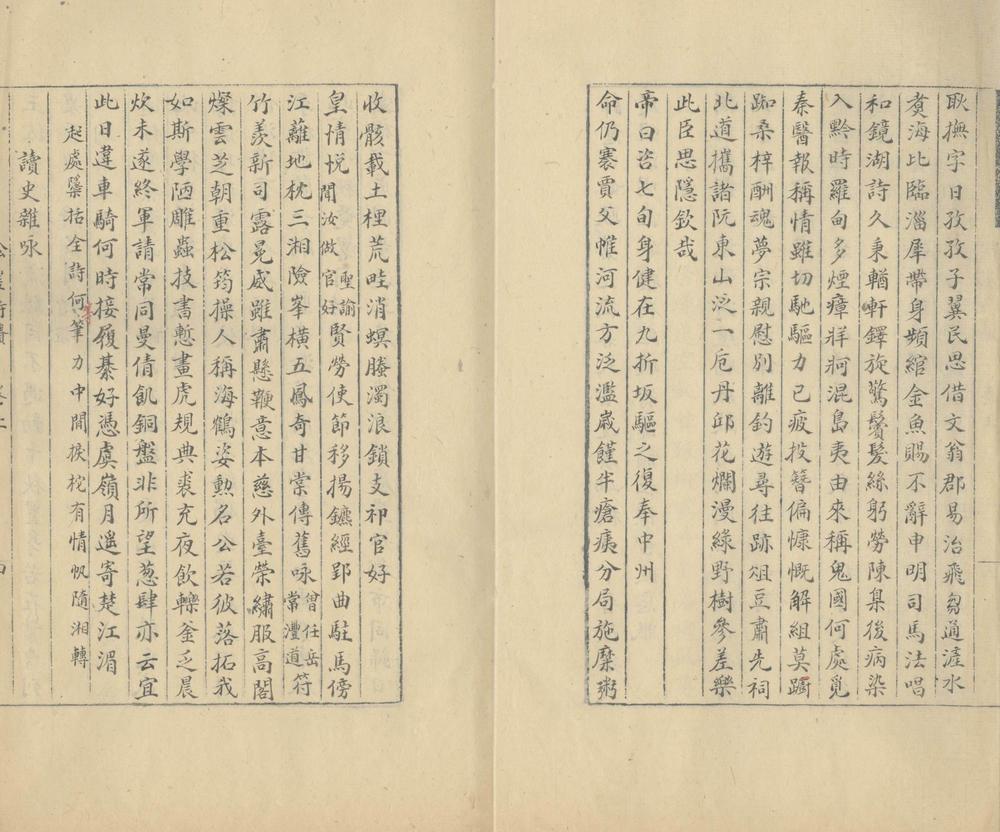 耿撫字日孜孜子翼民思借文翁郡易治飛芻通滻水
賚海此臨淄犀帶身頻綰金魚賜不辭申明司馬法唱
和鏡湖詩久秉輶軒鐸旋驚鬢髮絲躬勞陳臬後病染
入黔時羅甸多煙瘴牂牁混島夷由來稱鬼國何處覓
秦醫報稱情雖切馳驅力已疲投簪偏慷慨解組莫踟
踟桑梓酬魂夢宗親慰別離釣遊尋往跡俎豆肅先祠
北道攜諸阮東山泛一卮丹邱花爛漫綠野樹參差樂
此臣思隱欽哉
帝曰咨七旬身健在九折坂驅之復奉中州
命仍褰賈父帷河流方泛濫歲饉半瘡痍分局施糜粥
收骸載土梩荒畦消螟螣濁浪鎖支祁官好
皇情悅聞汝做官好聖諭賢勞使節移揚鑣經郢曲駐馬傍
江蘺地枕三湘險峯橫五鳳奇甘棠傳舊咏曾任岳常灃道符
竹羨新司露冕威雖肅懸鞭意本慈外臺榮繡服高閣
燦雲芝朝重松筠操人稱海鶴姿勲名公若彼落拓我
如斯學陋雕蟲技書慙畫虎規典裘充夜飲轢釜乏晨
炊未遂終軍請常同曼倩飢銅盤非所望葱肆亦云宜
此日違車騎何時接履綦好憑虞嶺月遥寄楚江湄
起處檃括全詩何等筆力中間捩柁有情帆隨湘轉
讀史雜咏